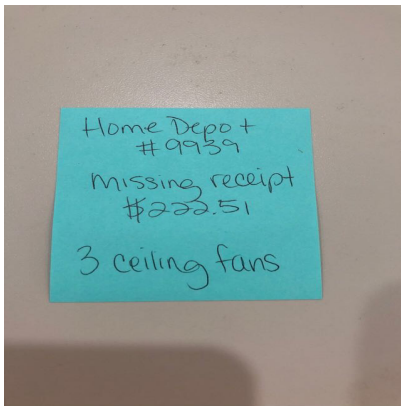 Home Depot
#9939
missing receipt
$222.51
3 ceiling fans